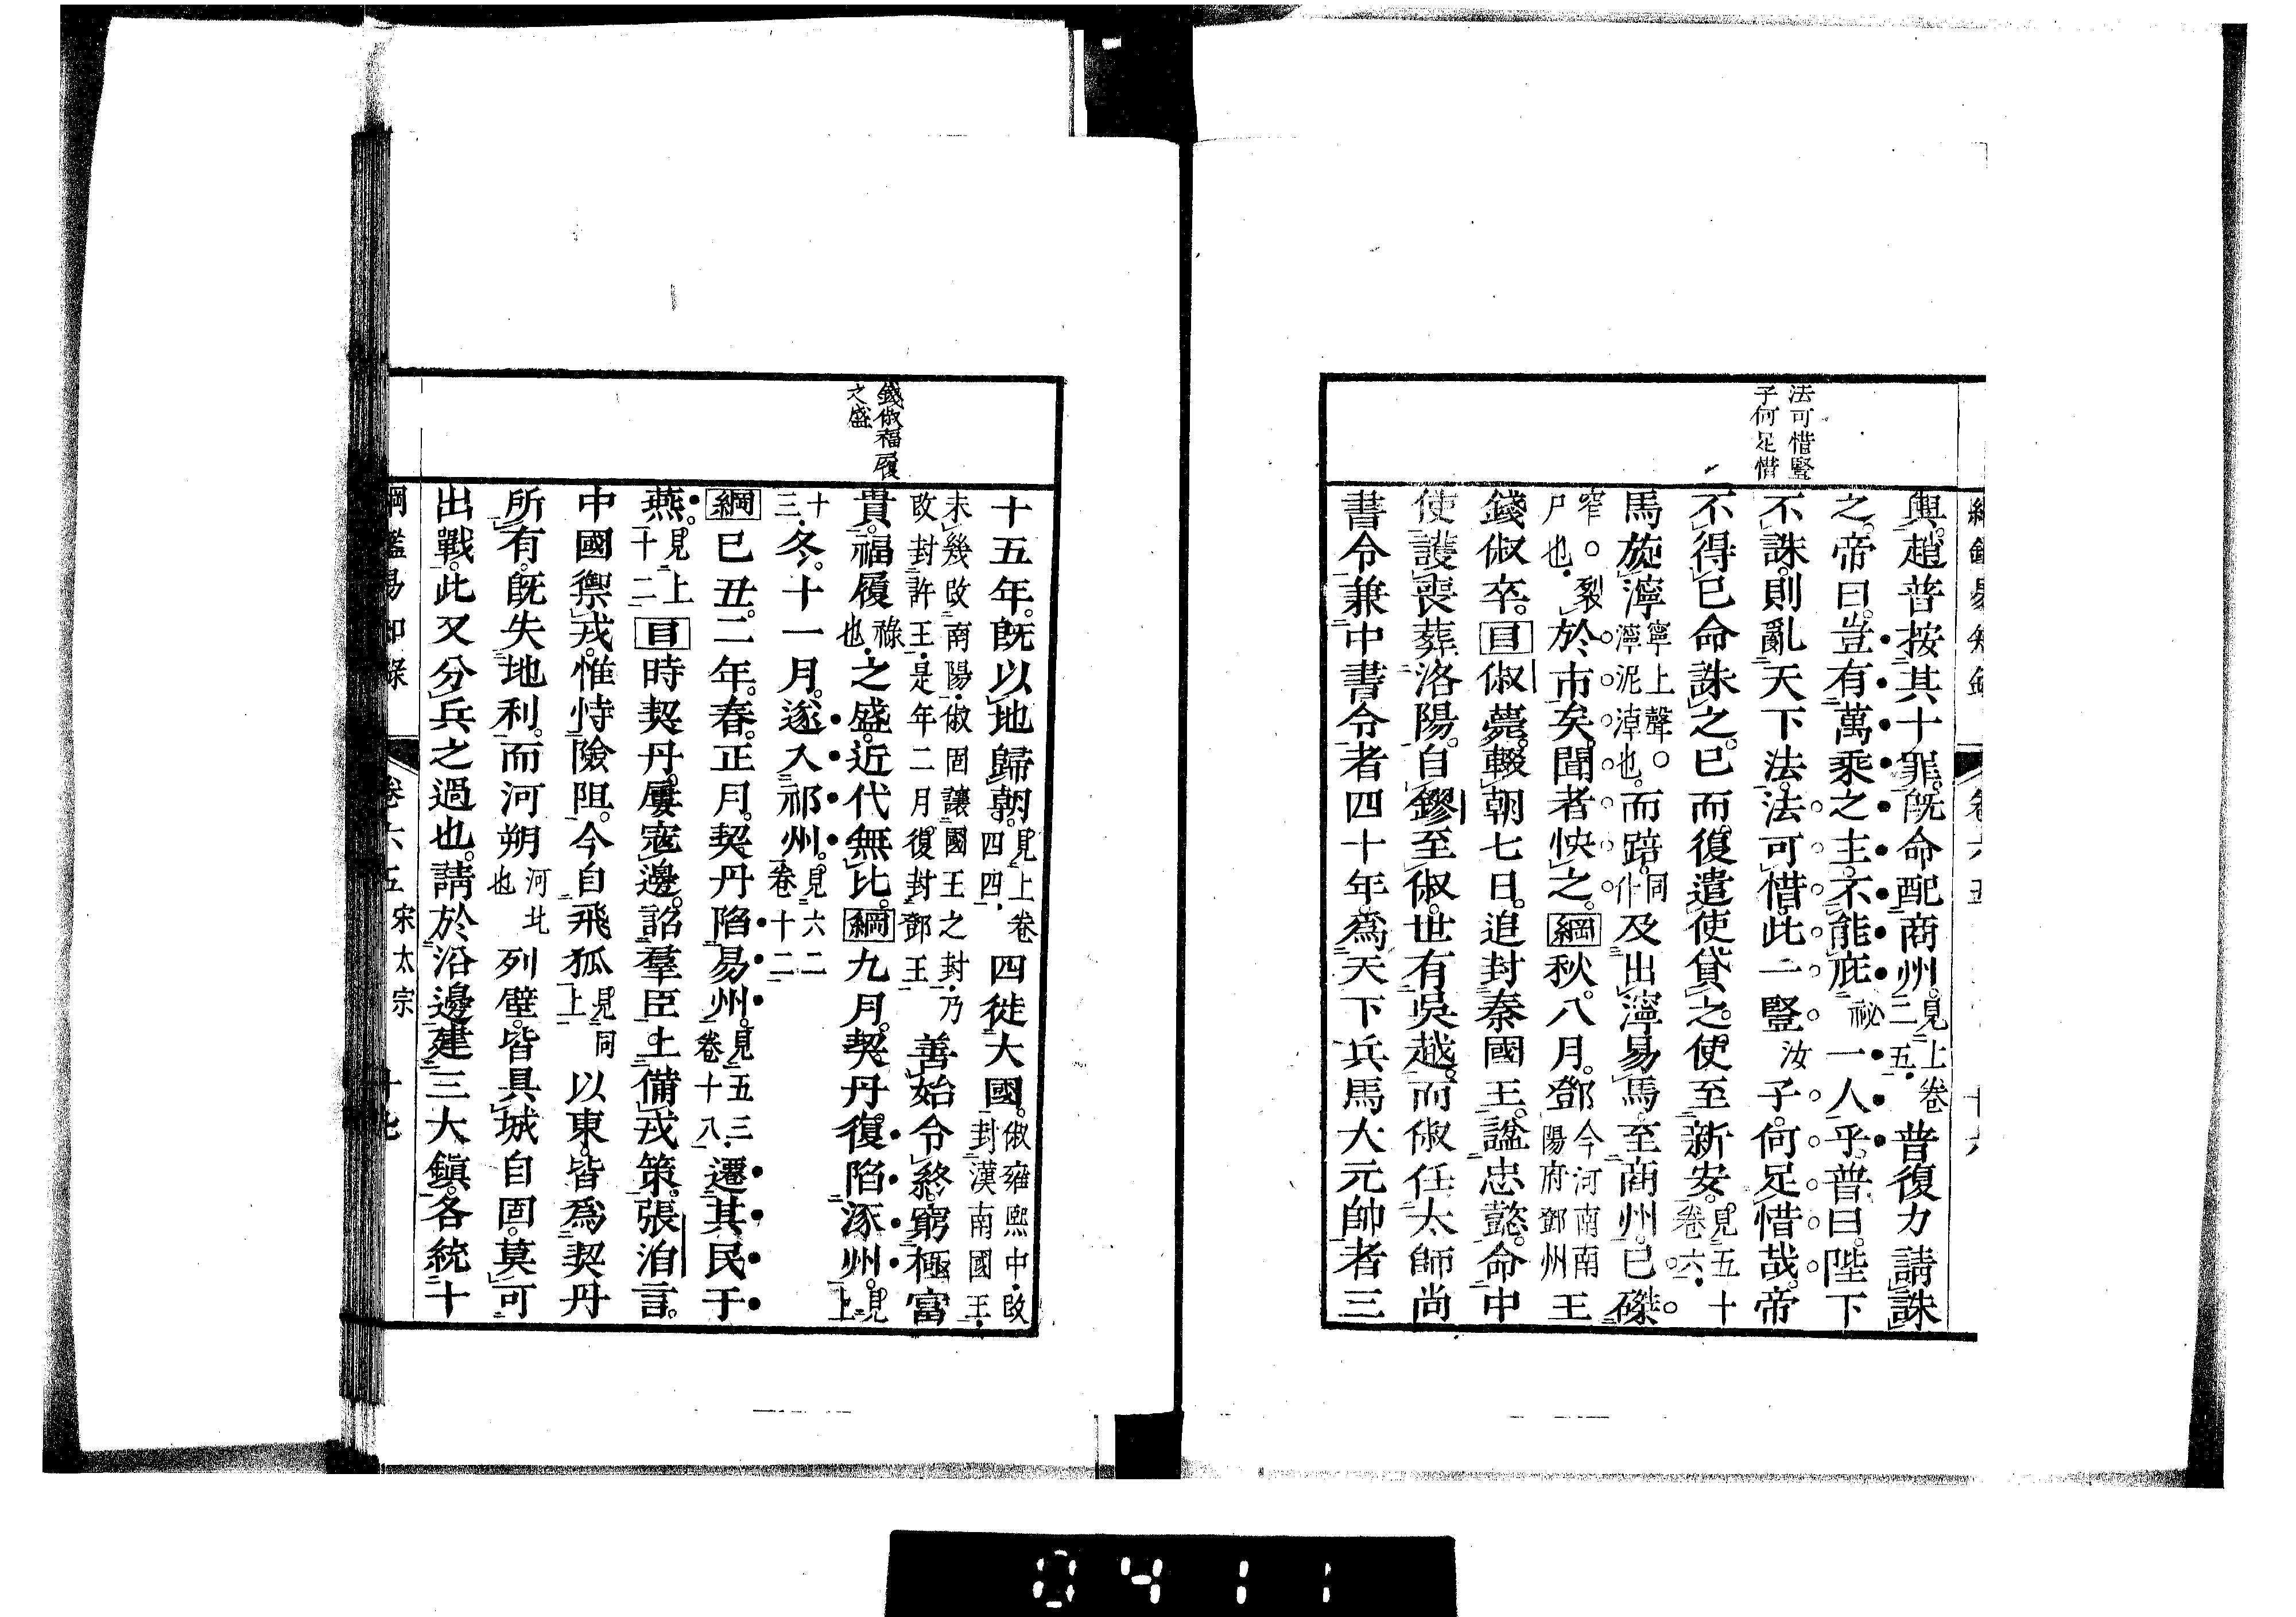 法可惜豎
子何足惜
輿。趙普按其十罪。既命配商州。見上卷二五。普復力請誅
之。帝曰。豈有萬乘之主。不能庇祕一人乎。普曰。陛下
不誅。則亂天下法。法可惜。此一豎汝子。何足惜哉。帝
不得已命誅之。已而復遣使貸之。使至新安。見五十卷六。
馬旋濘寧上聲○濘泥淖也。而踣。同仆及出濘易馬。至商州。已磔。
窄○裂尸也。於市矣。聞者快之。綱秋。八月。鄧今河南南陽府鄧州王
錢俶卒。目俶薨。輟朝七日。追封秦國王。諡忠懿。命中
使護喪葬洛陽。自鏐至俶。世有吳越。而俶任太師尚
書令兼中書令者四十年。為天下兵馬大元帥者三
錢俶福履
之盛
十五年。既以地歸朝。見上卷四四。四徙大國。俶雍熙中。改封漢南國王。
未幾改南陽。俶固讓國王之封。乃改封許王。是年二月。復封鄧王善始令終。窮極富
貴。福履祿也。之盛。近代無比。綱九月。契丹復陷涿州。見上
十三。冬。十一月。遂入祁州。見六二卷十二
綱己丑。二年。春。正月。契丹陷易州。見五三卷十八。遷其民于
燕。見上十二目時契丹屢寇邊。詔羣臣上備戎策。張洎言。
中國禦戎。惟恃險阻。今自飛狐見同上以東。皆為契丹
所有。既失地利。而河朔河北也列壁。皆具城自固。莫可
出戰。此又分兵之過也。請於沿邊建三大鎮。各統十
綱鑑易知錄 卷六五 宋太宗 十七
0411